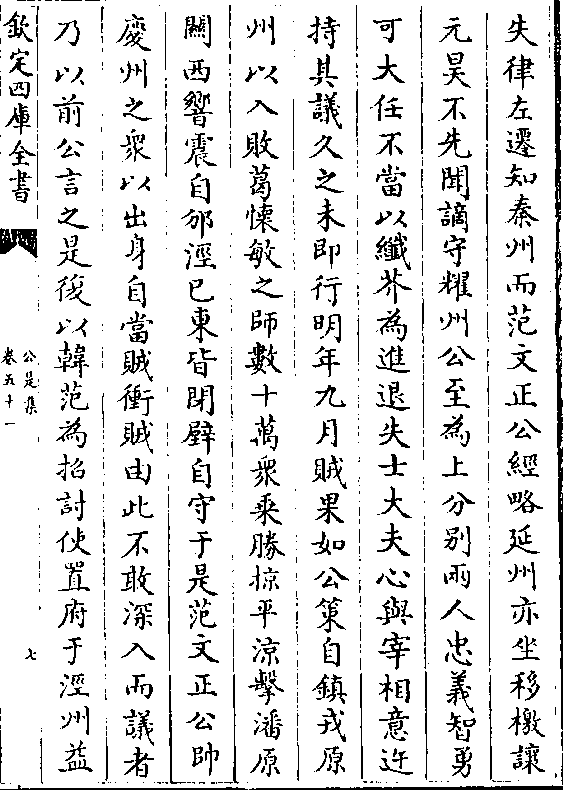 失律左遷知秦州而范文正公經略延州亦坐移檄讓
元昊不先聞謫守耀州公至為上分別兩人忠義智勇
可大任不當以纖芥為進退失士大夫心與宰相意迕
持其議久之未即行明年九月賊果如公策自鎮戎原
州以入敗葛懐敏之師數十萬衆乘勝掠平涼擊潘原
關西響震自邠涇已東皆閉壁自守于是范文正公帥
慶州之衆以出身自當賊衝賊由此不敢深入而議者
乃以前公言之是後以韓范為招討使置府于涇州益
欽定四庫全書
公是集
卷五十一
七